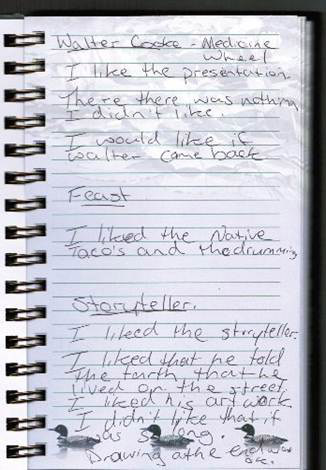 Walter Cooke - Medicine
Wheel
I like the presentation.
There there was nothing
I didn't like.
I would like if
Walter came back
Feast
I liked the Native
Taco's and the drumming
Storyteller.
I liked the storyteller.
I liked that he told
the truth, that he
lived on the street,
I liked his artwork
I didn't like that it
was so long.
Drawing at the end was